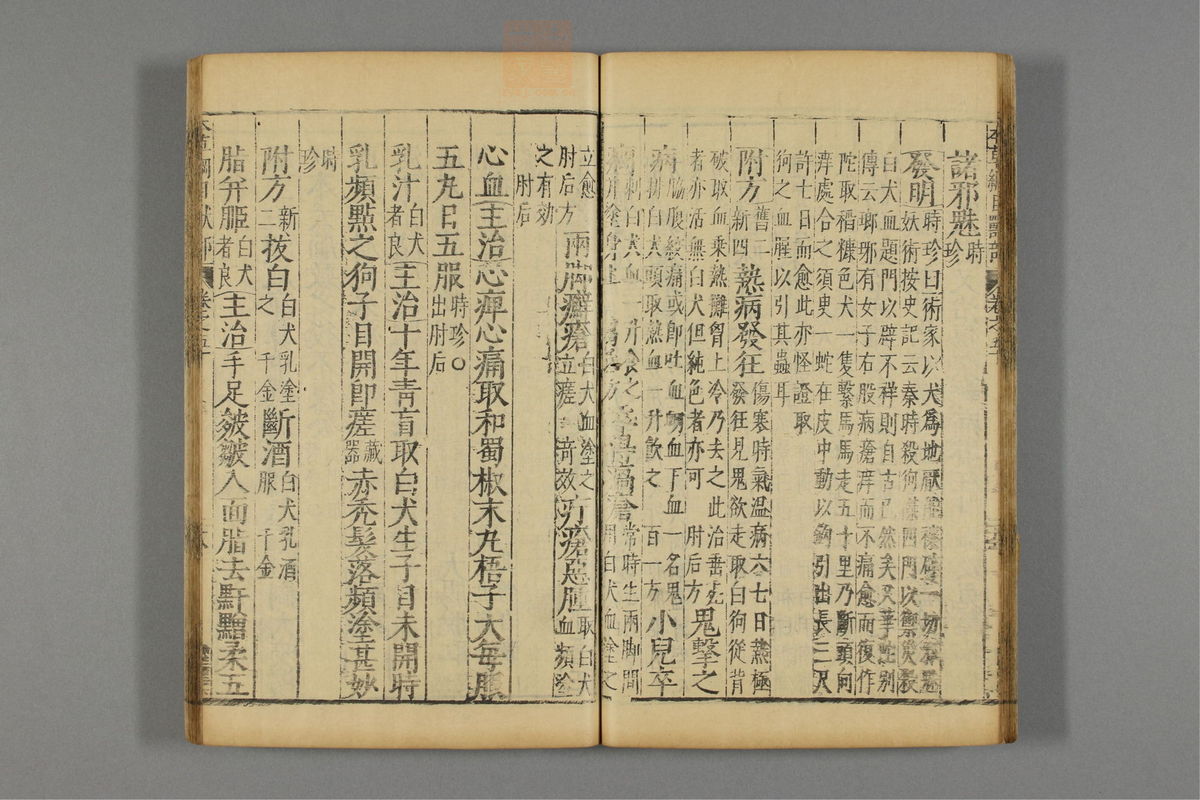 諸邪魅時珍
發明時珍曰術家以犬爲地厭能禳辟一切邪魅
妖術按史記云秦時殺狗磔四門以禦災殺
白犬血題門以辟不祥則自古已然矣又華佗別
傳云瑯琊有女子右股病瘡痒而不痛愈而復作
陀取稻糠色犬一隻繫馬馬走五十里乃斷頭向
痒處合之須臾一蛇在皮中動以鈎引出長三尺
許七日而愈此亦怪證取
狗之血腥以引其蟲耳
附方舊二新四熱病發狂傷寒時氣温病六七日熱極
發狂見鬼欲走取白狗從背
破取血乘熱攤胷上冷乃去之此治垂死
者亦活無白犬但純色者亦可 肘后方鬼擊之
病脇腹絞痛或即吐血衂血下血一名鬼
排白犬頭取熱血一升飲之 百一方小兒卒
刺白犬血一升
常時生兩脚間
用白犬血塗之
立愈
肘后方兩脚癬瘡白犬血塗之
立瘥 奇效疔瘡惡腫取白犬
血頻塗
之有効
肘后
心血主治心痺心痛取和蜀椒末丸梧子大每服
五丸日五服時珍○出肘后
乳汁白犬者良主治十年靑盲取白犬生子目未開時
乳頻點之狗子目開即瘥藏器赤禿髮落頻塗甚妙
時珍
附方新二拔白白犬乳塗之 千金斷酒白犬乳酒服 千金
脂并䏰白犬者良主治手足皴皺入面脂去䵟䵳柔五